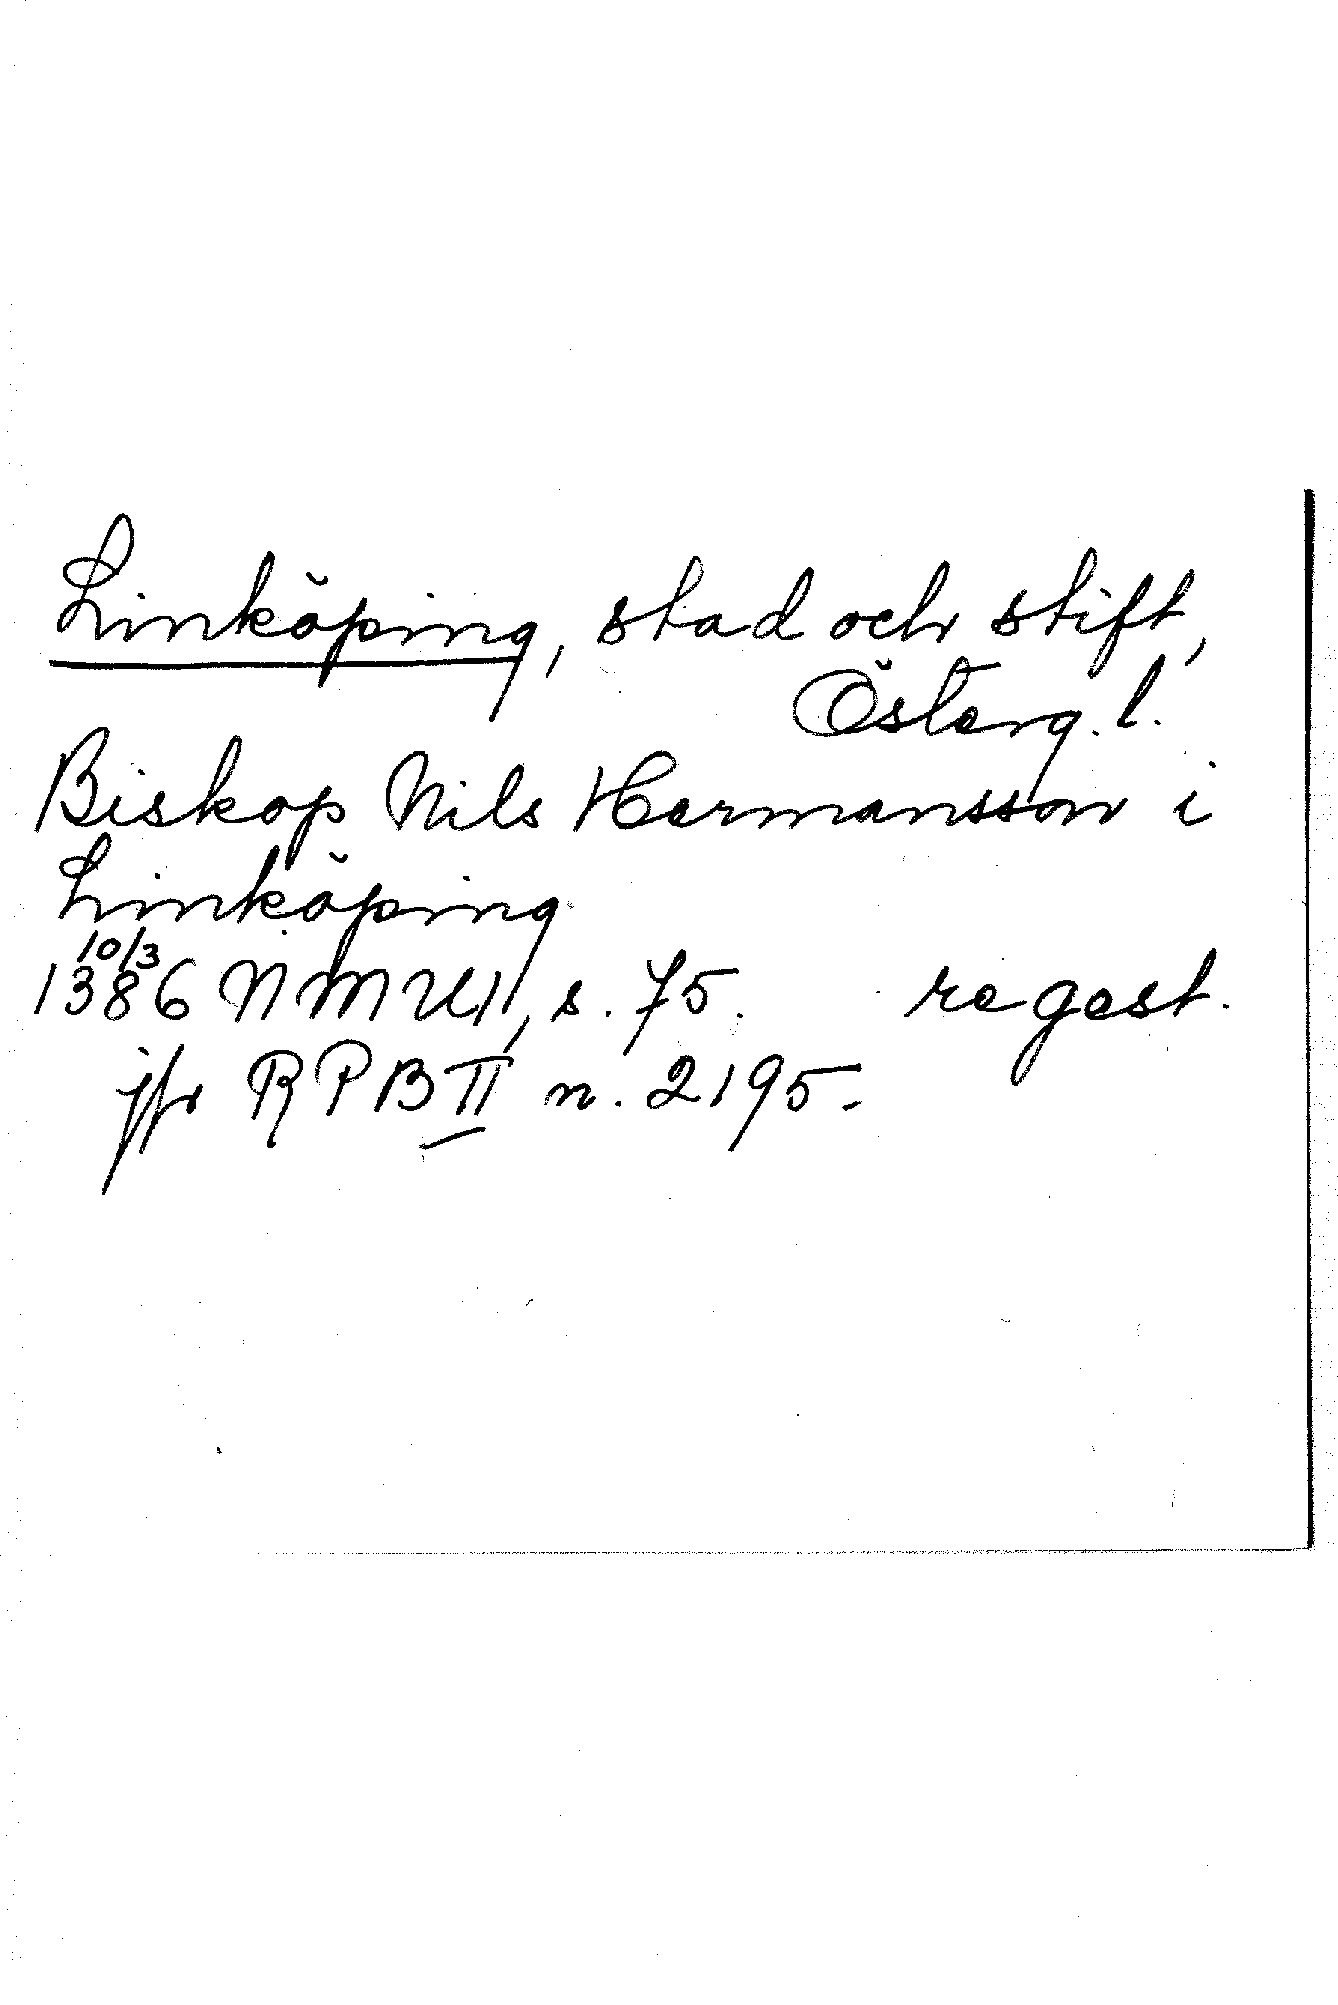 Linköping, stad och stift,
Österg. l.
Biskop Nils Hermansson i
Linköping
10/3
1386 NMU1, s. 75. regest.
jfr RPB II n. 2195.